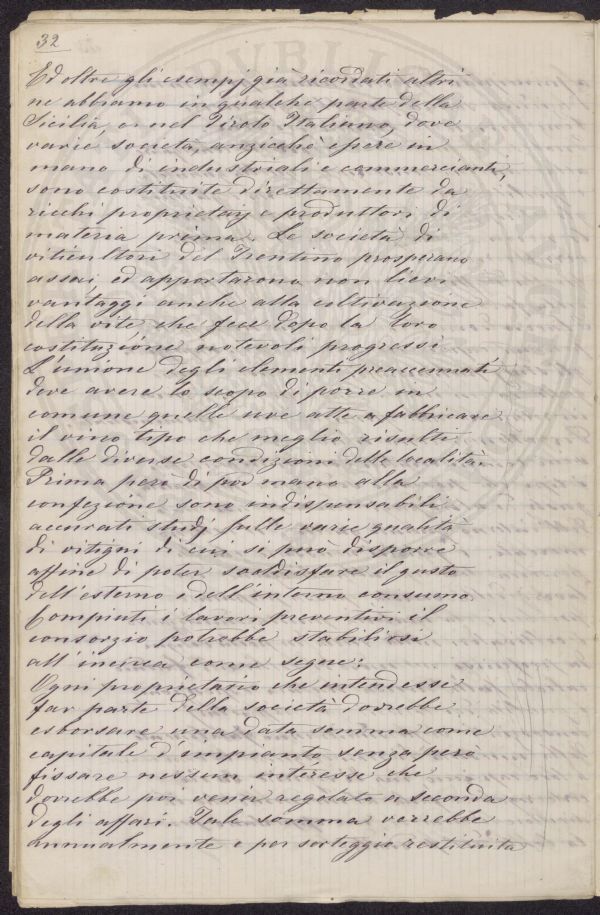 32
Ed oltre gli esempj già ricordati altri
ne abbiamo in qualche parte della
Sicilia, e nel Tirolo Italiano, dove
varie società, anzicchè essere in
mano di industriali e commercianti,
sono costituite direttamente da
ricchi proprietarj e produttori di
materia prima. Le società di
viticultori del Trentino prosperano
assai ed apportarono non lievi
vantaggi anche alla coltivazione
della vite che fece dopo la loro
costituzione notevoli progressi.
L'unione degli elementi preaccennati
deve avere lo scopo di porre in
comune quelle uve atte a fabbricare
il vino tipo che meglio risulti
dalle diverse condizioni delle località.
Prima però di por mano alla
confezione sono indispensabili
accurati studj sulle varie qualità
di vitigni di cui si può disporre
affine di poter soddisfare il gusto
dell'esterno e dell'interno consumo.
Compiuti i lavori preventivi il
consorzio potrebbe stabilirsi
all'incirca come segue:
Ogni proprietario che intendesse
far parte della società dovrebbe
esborsare una data somma come
capitale d'impianto, senza però
fissare nessun interesse che
dovrebbe poi venir regolato a seconda
degli affari. Tale somma verrebbe
annualmente e per sorteggio restituita
PVBLI